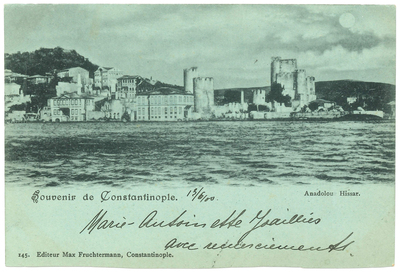 Souvenir de Constantinople. 13/6/00
Anadolou Hissar.
Marie-Antoinette
avec remerciements
145. Editeur Max Fruchtermann, Constantinople.